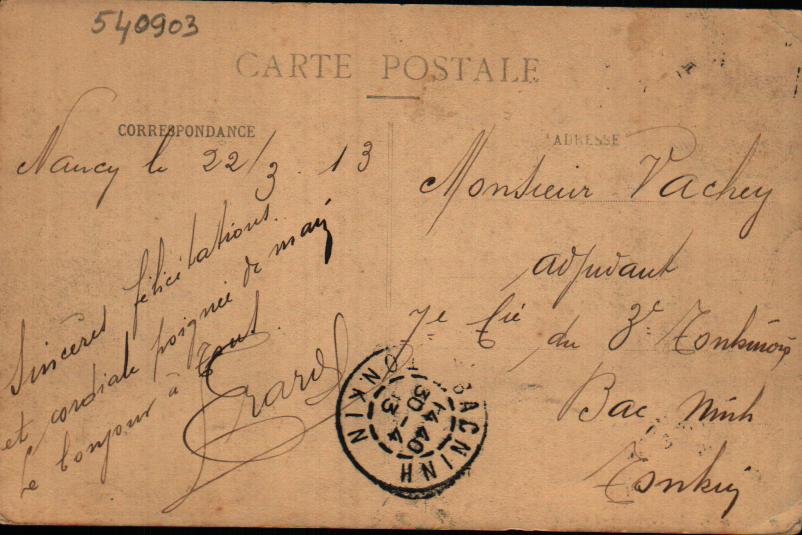 540903
CARTE POSTALE
CORRESPONDANCE
ADRESSE
Nancy le 22/3 . 13
Sincères félicitations.
et cordiale poignée de main
Le bonjour à tout.
Monsieur Vachey
adjudant
7e Cie du 3e Tonkinois
Bac Ninh
Tonkin
BACNINH
TONKIN
14 40
30 - 4
13